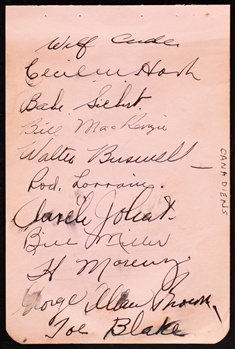 Wilf Cude
Babe Siebert
Bill MacKenzie
Walter Buswell
Rod. Lorrain.
Aurèle Joliat.
Bill Miller
H Morenz
George Allan Brown
Toe Blake
CANADIENS